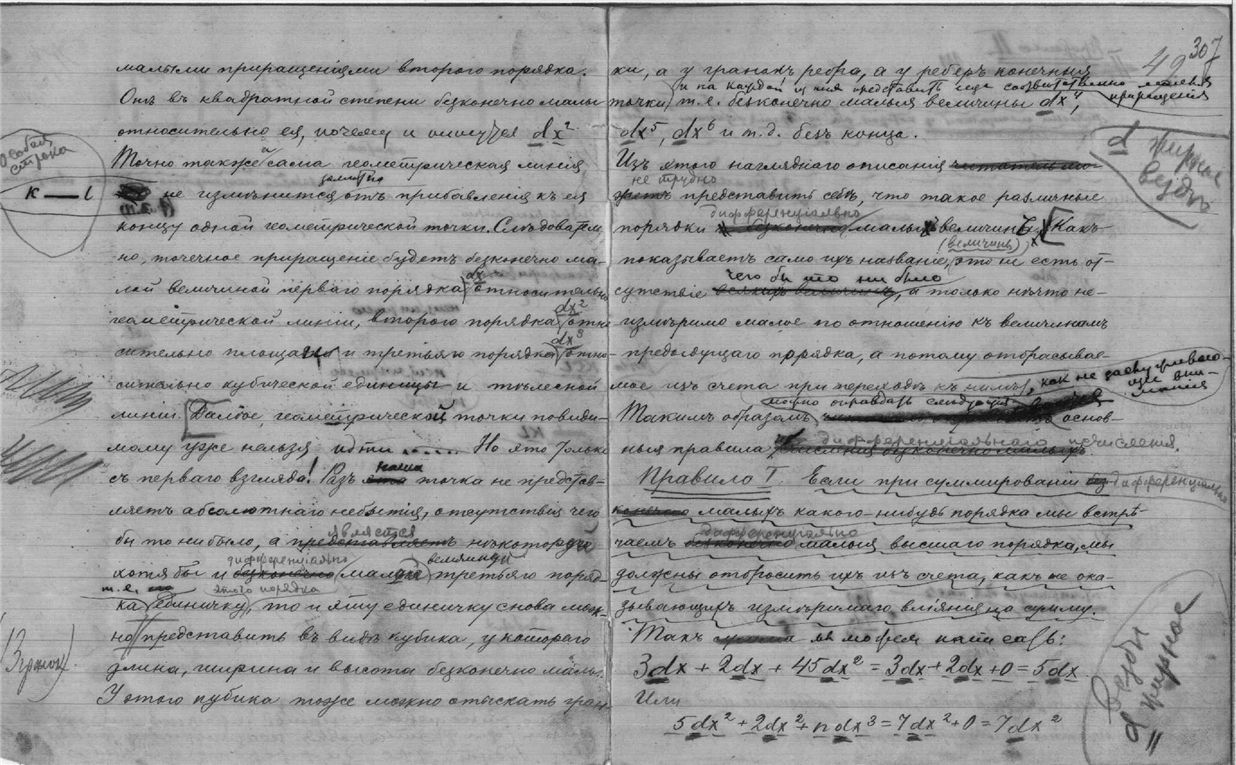 малыми приращеніями второго порядка.
Онъ въ квадратной степени безконечно малы
относительно ея, почему и пишутся dx²
Точно также и сама геометрическая линія
замѣтно
не измѣнится отъ прибавленія къ ея
концу одной геометрической точки. Слѣдователь-
но, точечное приращеніе будетъ безконечно ма-
лой величиной перваго порядка dx относительно
геометрической линіи, второго порядка dx² отно-
сительно площадки и третьяго порядка dx³ отно-
сительно кубической единицы и тѣлесной
линіи. Далѣе, геометрической точки повиди-
мому уже нельзя идти ...... Но это только
съ перваго взгляда! Разъ наша точка не представ-
ляетъ абсолютнаго небытія, отсутствія чего
бы то ни было, а является нѣкоторую
хотя бы и дифференціально малой величиной третьяго поряд-
т.е.
этого порядка
ка единичку, то и эту единичку снова мож-
но представить въ видѣ кубика, у котораго
длина, ширина и высота безконечно малы.
У этого кубика тоже можно отыскать гран
Особая
строка
к — l
307
49
ки, а у гранокъ ребра, а у реберъ конечныя
и на каждой из них представить еще соответственно малыя приращенія
точки, т.е. безконечно малыя величины dx⁴,
dx⁵, dx⁶ и т.д. безъ конца.
Изъ этого нагляднаго описанія
не трудно
представить себѣ, что такое различные
дифференціально
порядки малыхъ величинъ. Какъ
(величинъ)
показываетъ само ихъ названіе, это не есть от-
чего бы то ни было
сутствіе, а только нѣчто не-
измѣримо малое по отношенію къ величинамъ
предыдущаго порядка, а потому отбрасывае-
мое изъ счета при переходѣ къ нимъ, как не заслуживаю-
щее вни-
манія
можно оправдать слѣдующія
Такимъ образомъ основ-
ныя правила дифференціальнаго исчисленія.
Правило I. Если при суммированіи дифференціально
малыхъ какого-нибудь порядка мы встрѣ-
чаемъ дифференціально малыя высшаго порядка, мы
должны отбросить ихъ изъ счета, какъ не ока-
зывающихъ измѣримаго вліянія на сумму.
Такъ мы можем написать:
3dx + 2dx + 45dx² = 3dx + 2dx + 0 = 5dx
Или
5dx² + 2dx² + n dx³ = 7dx² + 0 = 7dx²
d жирное
вездѣ
вездѣ
d жирное